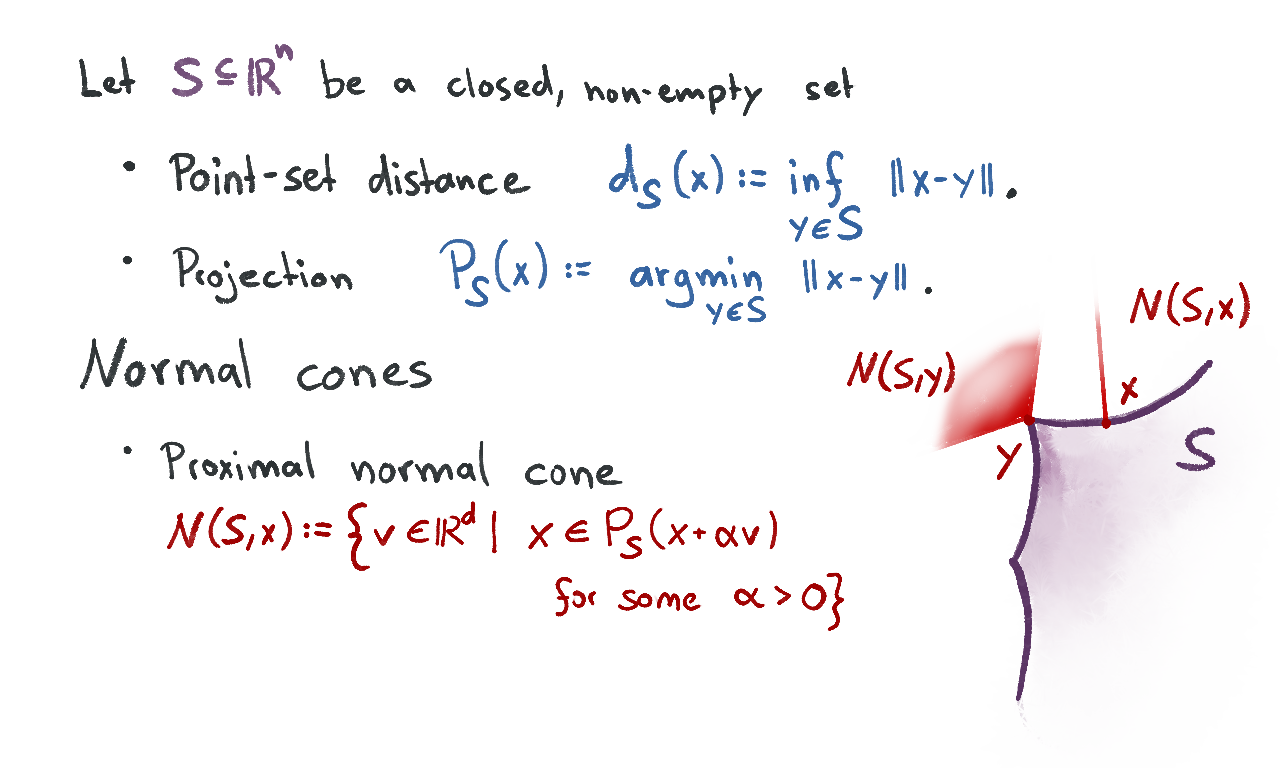 Let S ⊆ ℝⁿ be a closed, non-empty set
• Point-set distance d_S(x) := inf_{y∈S} ‖x-y‖.
• Projection P_S(x) := argmin_{y∈S} ‖x-y‖.
Normal cones
• Proximal normal cone
N(S,x) := {v ∈ ℝᵈ | x ∈ P_S(x+αv)
for some α > 0}
N(S,x)
N(S,y)
x
y
S